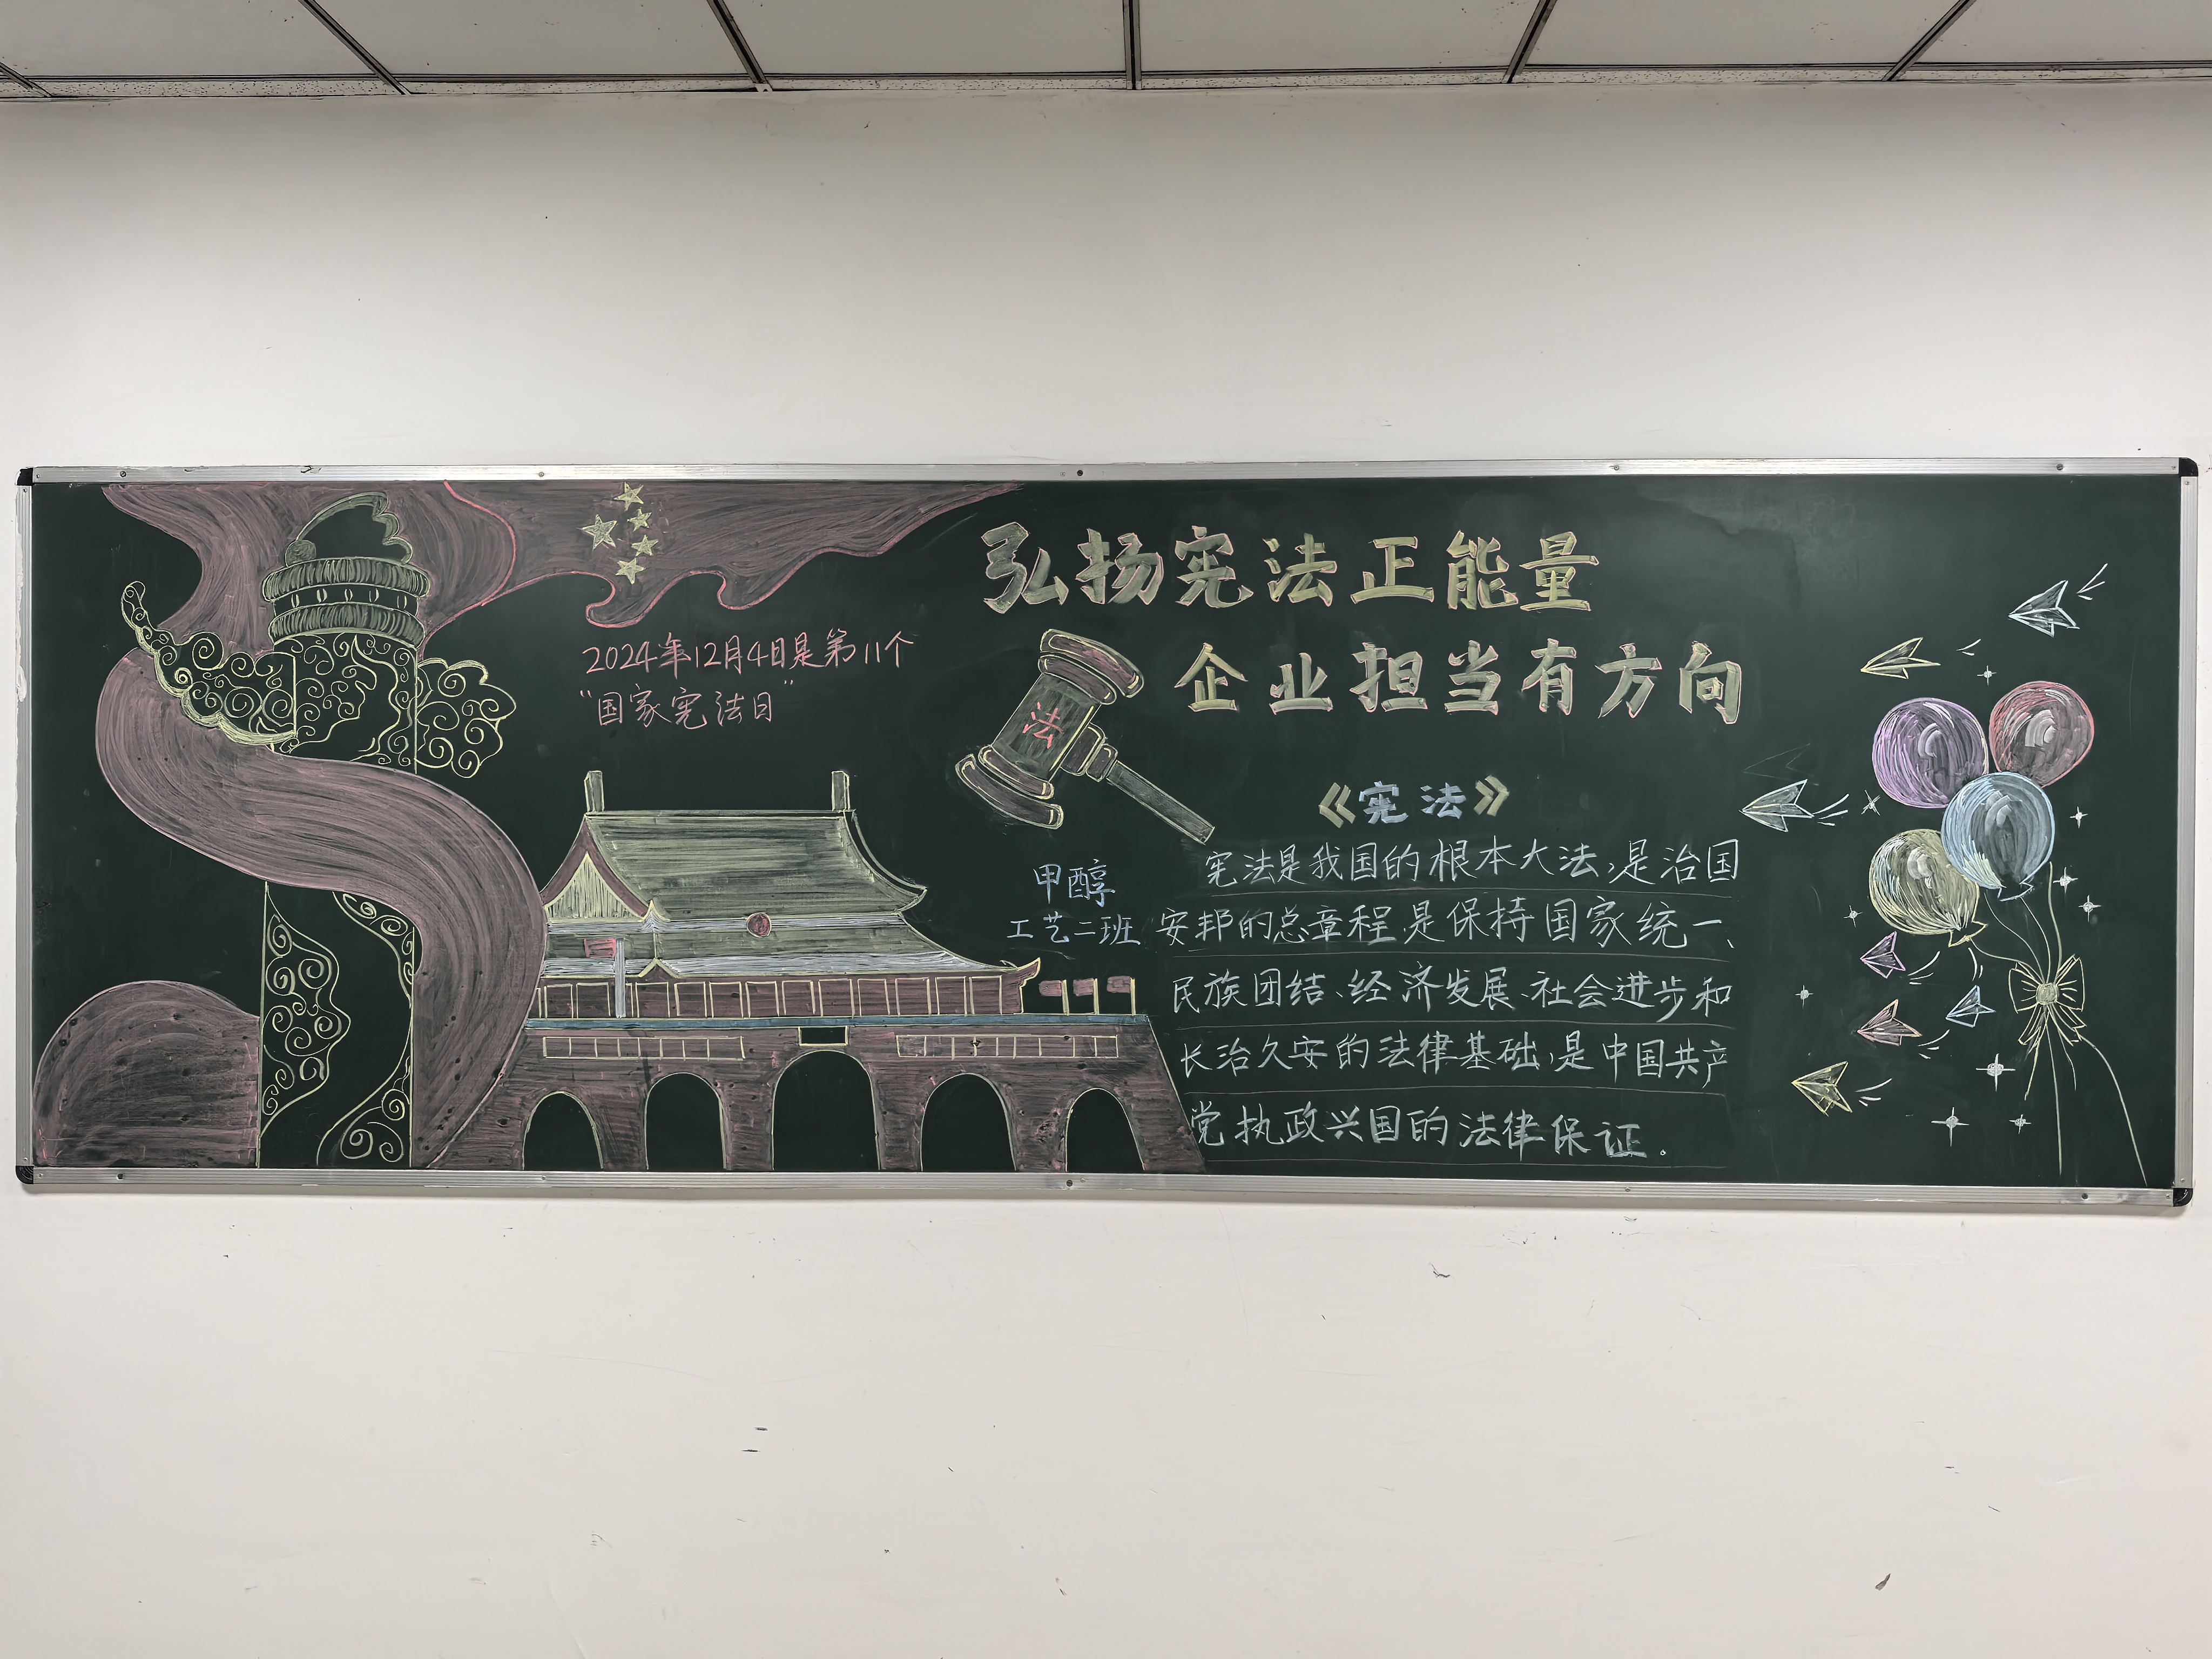 弘扬宪法正能量
企业担当有方向
2024年12月4日是第11个
“国家宪法日”
法
《宪法》
甲醇
工艺二班
宪法是我国的根本大法,是治国
安邦的总章程,是保持国家统一、
民族团结、经济发展、社会进步和
长治久安的法律基础,是中国共产
党执政兴国的法律保证.